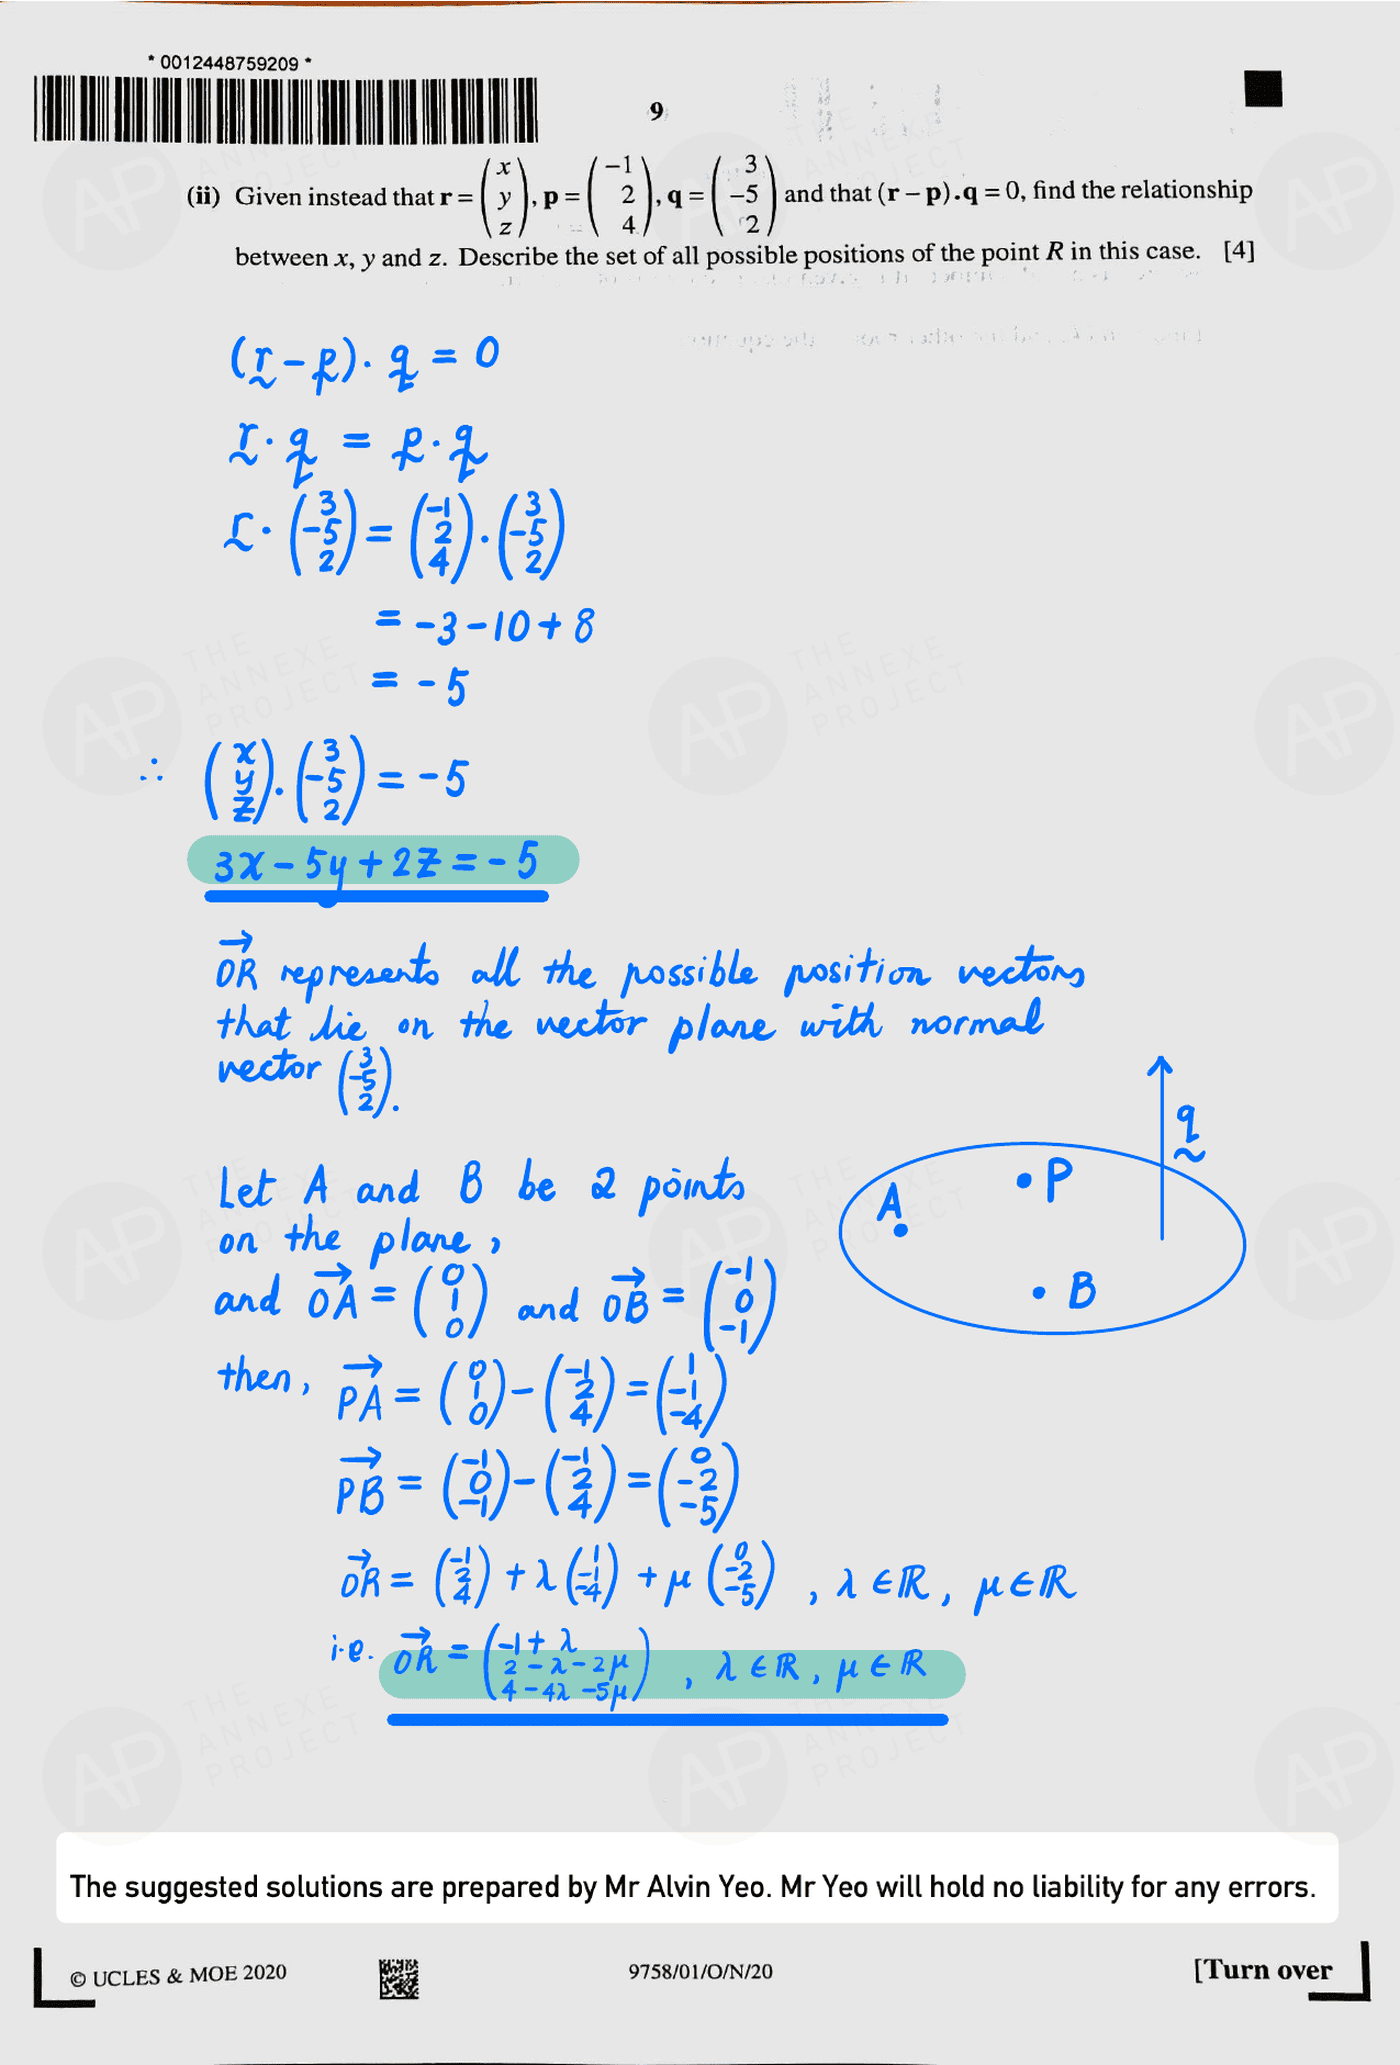 * 0012448759209 *
9
(ii) Given instead that r = (x y z), p = (−1 2 4), q = (3 −5 2) and that (r − p).q = 0, find the relationship
between x, y and z. Describe the set of all possible positions of the point R in this case. [4]
(r − p) · q = 0
r · q = p · q
r · (3 −5 2) = (−1 2 4) · (3 −5 2)
= −3 − 10 + 8
= −5
∴ (x y z) · (3 −5 2) = −5
3x − 5y + 2z = −5
OR represents all the possible position vectors
that lie on the vector plane with normal
vector (3 −5 2).
q
Let A and B be 2 points
P
A
on the plane,
and OA = (0 1 0) and OB = (−1 0 −1)
B
then, PA = (0 1 0) − (−1 2 4) = (1 −1 −4)
PB = (−1 0 −1) − (−1 2 4) = (0 −2 −5)
OR = (−1 2 4) + λ(1 −1 −4) + μ(0 −2 −5), λ ∈ ℝ, μ ∈ ℝ
i.e. OR = (−1 + λ 2 − λ − 2μ 4 − 4λ − 5μ), λ ∈ ℝ, μ ∈ ℝ
THE ANNEXE PROJECT
AP
The suggested solutions are prepared by Mr Alvin Yeo. Mr Yeo will hold no liability for any errors.
© UCLES & MOE 2020
9758/01/O/N/20
[Turn over